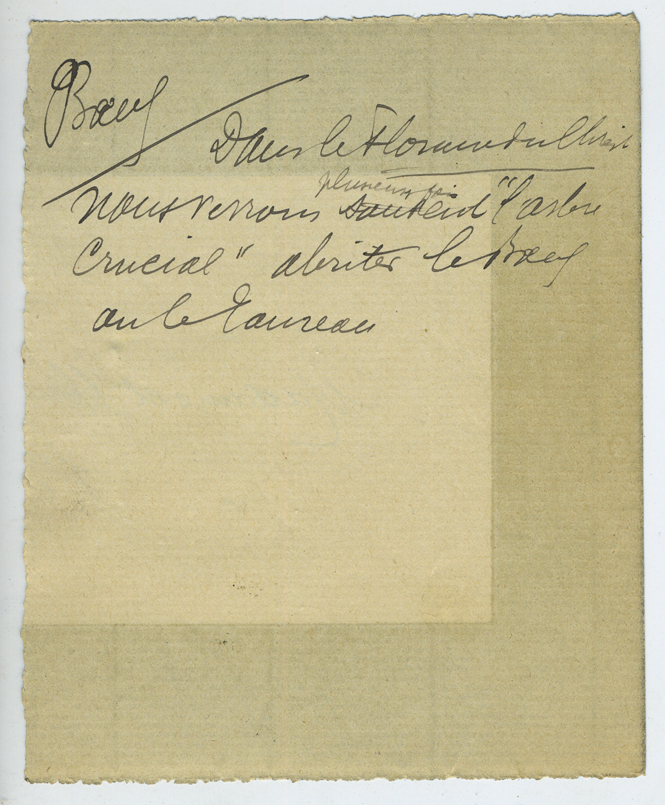 Bœuf
Dans le Floraire du Christ
plusieurs fois
nous verrons souvent "l'arbre
Crucial" abriter le Bœuf
ou le Taureau